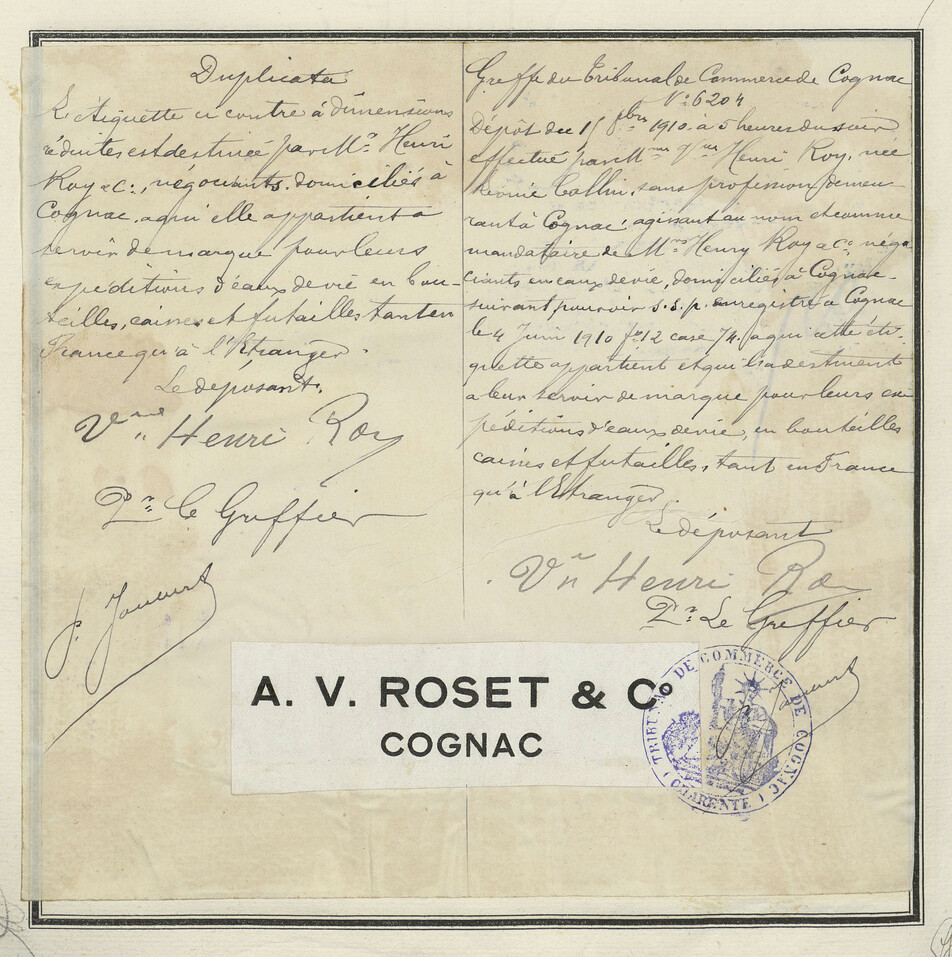 Duplicata
L'étiquette ci contre à dimensions
réduites est destinée par Mrs Henri
Roy & Co, négociants domiciliés à
Cognac, a qui elle appartient a
servir de marque pour leurs
expéditions d'eaux de vie en bou-
teilles, caisses et futailles tant en
France qu'à l'Etranger.
Le déposant.
Vve Henri Roy
Pr le Greffier
Greffe du Tribunal de Commerce de Cognac
No 6204
Dépôt du 15 1910 à 5 heures du soir
effectué par Mme Vve Henri Roy, née
Collin, sans profession, demeu-
rant à Cognac, agissant au nom et comme
mandataire de Mrs Henry Roy & Co, négo
ciants en eaux de vie, domiciliés à Cognac
suivant pouvoir s.s.p. enregistré à Cognac
le 4 Juin 1910 fo 12 case 74, a qui cette éti-
quette appartient et qui la destinent
a leur servir de marque pour leurs ex
péditions d'eaux de vie, en bouteilles
caisses et futailles, tant en France
qu'à l'Etranger.
Le déposant
Vve Henri Roy
Pr Le Greffier
A. V. ROSET & Co
COGNAC
TRIBUNAL DE COMMERCE DE COGNAC
(CHARENTE)